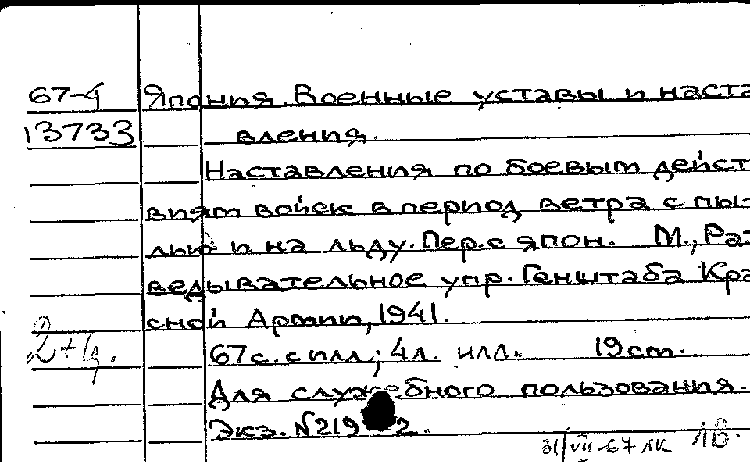 67-4 Япония. Военные уставы и наста
13733 вления.
Наставления по боевым дейст
виям войск в период ветра с пы
лью и на льду. Пер. с япон. М., Раз
ведывательное упр. Генштаба Кра
сной Армии, 1941.
2+1д. 67 с. с илл.; 4 л. илл. 19 cm.
Для служебного пользования.
Экз. №219 2.
31/VII-67 1б.